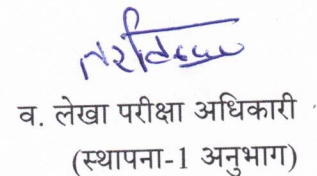 व. लेखा परीक्षा अधिकारी
(स्थापना-1 अनुभाग)